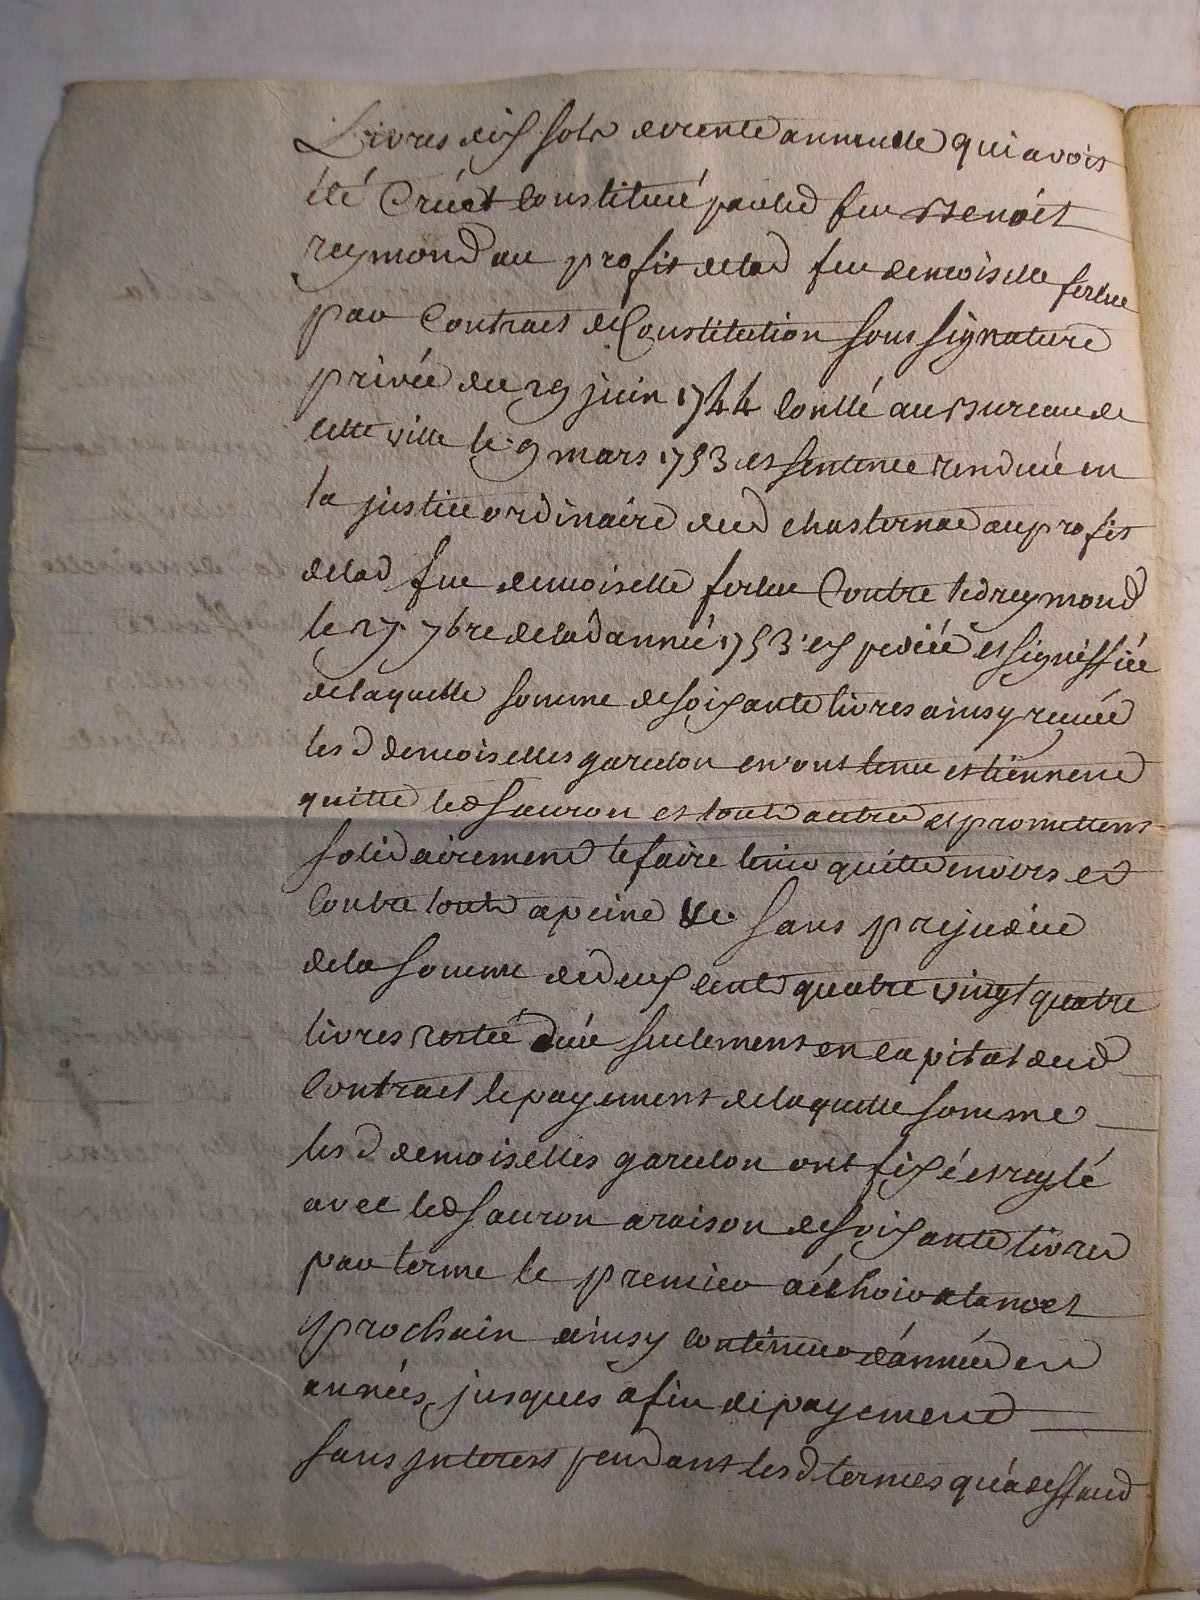 Livres dix sols de rente annuelle qui avoit
été Crééet Constitué parled feu Benoit
reymond au profit delad feu demoiselle ferlue
par Contract de Constitution sous signature
privée du 29 juin 1744 Conllé au Bureau de
cette ville le 9 mars 1753 et sentence renduée en
la justice ordinaire dud chasternac au profit
delad feue demoiselle ferlue Contre led reymond
le 27 7bre delad année 1753 expediée et signiffiée
de laquelle somme de soixante livres ainsy reçuée
lesd demoiselles garculon en ont tenu et tiennend
quitte led Sauron et toutd autred et promettent
solidairement le faire tenir quitte envers et
Contre toutd a peine &c. sans prejudice
de la somme de deux centd quatre vingt quatre
livres restée duée seulement en capital dud
Contract le payement de laquelle somme
lesd demoiselles garculon ont fixé et reglé
avec led Sauron a raison de soixante livred
par terme le premier a échoir a la noel
prochain ainsy continuer d'année en
années jusques a fin de payement
sans interest pendant lesd termes qu'a deffaud